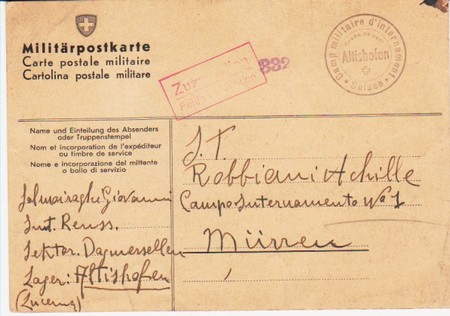 Militärpostkarte
Carte postale militaire
Cartolina postale militare
332
Camp militaire d'internement
Altishofen
Suisse
Name und Einteilung des Absenders
oder Truppenstempel
Nom et incorporation de l'expéditeur
ou timbre de service
Nome e incorporazione del mittente
o bollo di servizio
Salmoiraghi Giovanni
Int. Reuss.
Sektor. Dagmersellen
Lager: Altishofen
(Lucerna)
I. T.
Robbiani Achille
Campo Internamento No 1
Mürren